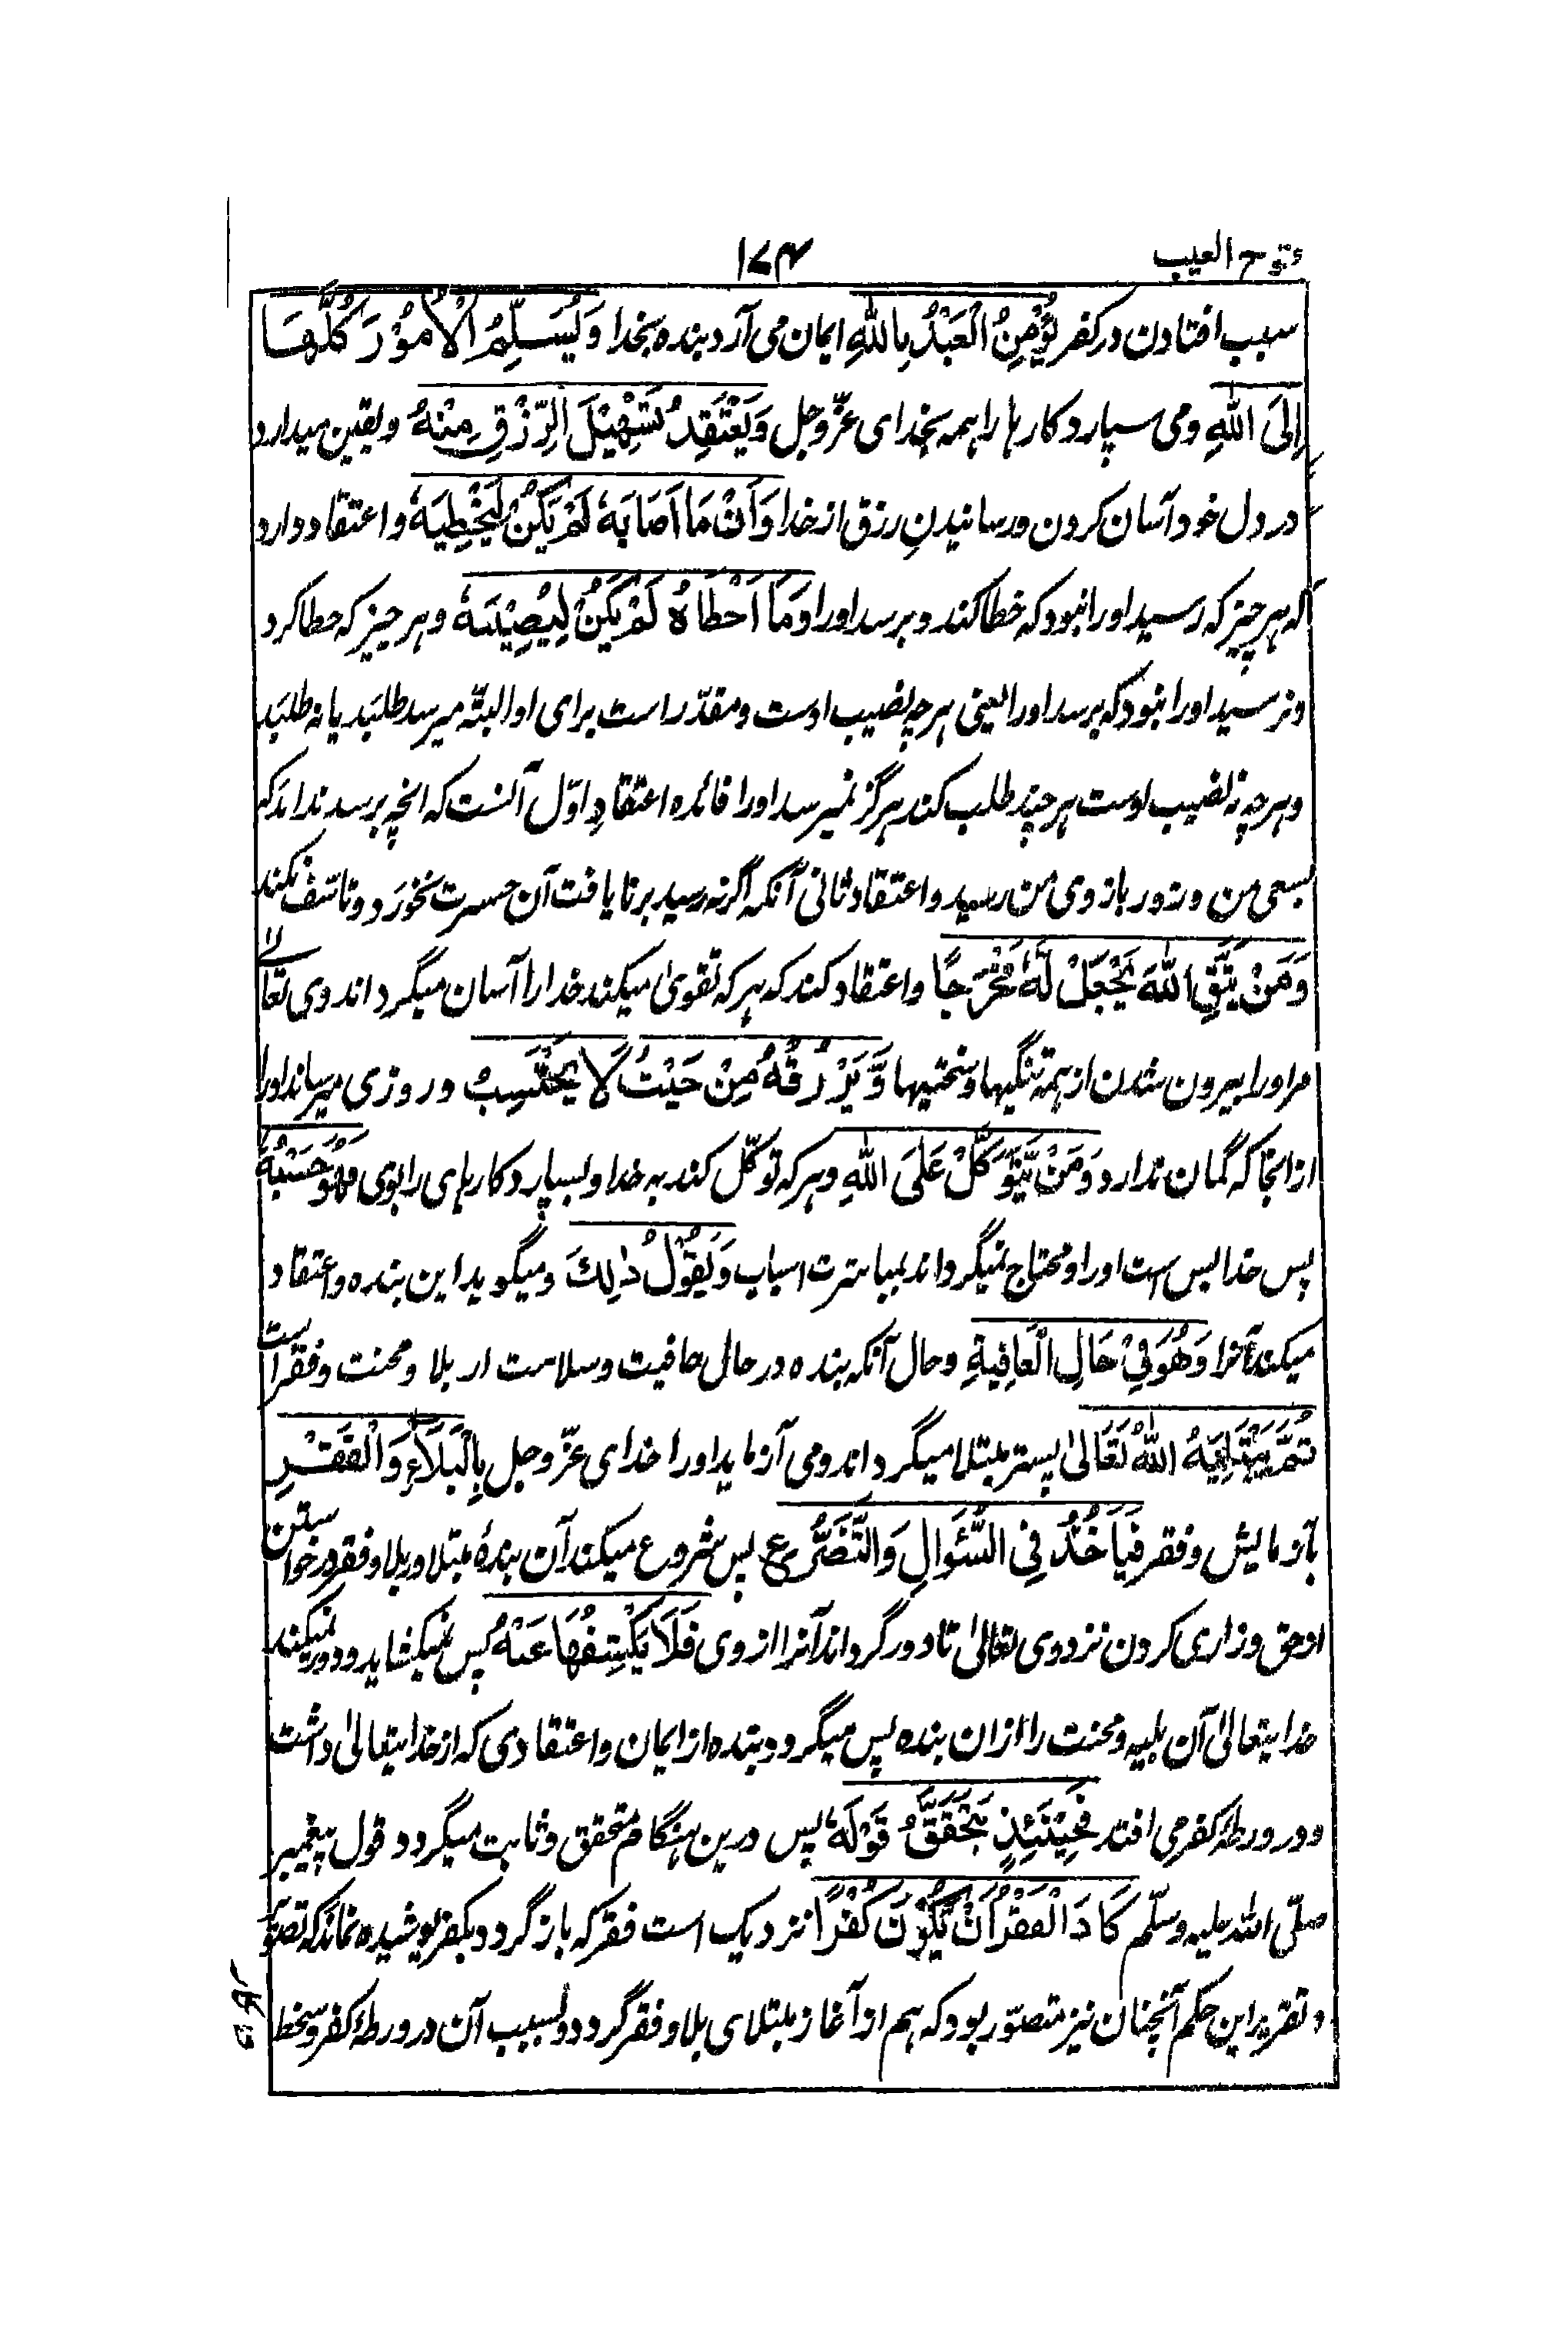 فتوح الغیب
۱۷۴
سبب افتادن در کفر یُؤْمِنُ الْعَبْدُ بِاللهِ ایمان می آرد بنده بخدا وَیُسَلِّمُ الْأُمُوْرَ کُلَّهَا
اِلَی اللهِ و می سپارد کارها را همه بخدای عزّوجل وَیَعْتَقِدُ تَسْهِیْلَ الرِّزْقِ مِنْهُ و یقین میدارد
در دل خود آسان کردن و رسانیدنِ رزق از خدا وَاَنَّ مَا اَصَابَهٗ لَمْ یَکُنْ لِیُخْطِیَهٗ و اعتقاد دارد
که هر چیز که رسید او را نبود که خطا کند و نرسد او را وَمَا اَخْطَاَهُ لَمْ یَکُنْ لِیُصِیْبَهٗ و هر چیز که خطا کرد
و نرسید او را نبود که برسد او را یعنی هرچه نصیب اوست و مقدّر است برای او البتّه میرسد طلبَد یا نه طلبَد
و هرچه نه نصیب اوست هر چند طلب کند هرگز نمیرسد او را فائده اعتقادِ اوّل آنست که انچه برسد نداند که
بسعی من و زور بازوی من رسید و اعتقاد ثانی آنکه اگر نه رسید بر نایافت آن حسرت نخورَد و تاسّف نکند
وَمَنْ یَّتَّقِ اللهَ یَجْعَلْ لَّهٗ مَخْرَجًا و اعتقاد کند که هر که تقویٰ میکند خدا را آسان میگرداند وی تعالےٰ
مر او را بیرون شدن از همه تنگیها و سختیها وَّیَرْزُقْهُ مِنْ حَیْثُ لَا یَحْتَسِبُ و روزی میرساند او را
از انجا که گمان ندارد وَمَنْ یَّتَوَکَّلْ عَلَی اللهِ و هر که توکّل کند به خدا و بسپارد کارهای را بوی فَهُوَ حَسْبُهٗ
پس خدا بس است او را و محتاج نمیگرداند بمباشرت اسباب وَیَقُوْلُ ذٰلِكَ و میگوید این بنده و اعتقاد
میکند آنرا وَهُوَ فِیْ حَالِ الْعَافِیَةِ و حال آنکه بنده در حال عافیت و سلامت از بلا و محنت و فقر است
ثُمَّ یَبْتَلِیْهِ اللهُ تَعَالیٰ پستر مبتلا میگرداند و می آزماید او را خدای عزّوجل بِالْبَلَاءِ وَالْفَقْرِ
بآزمایش و فقر فَیَاْخُذُ فِی السُّؤَالِ وَالتَّضَرُّعِ پس شروع میکند آن بندهٔ مبتلا در بلا و فقر در خواستن
از حق و زاری کردن نزد وی تعالیٰ تا دور گرداند آنرا از وی فَلَا یَکْشِفُهَا عَنْهُ پس نمیکشاید و دور نمیکند
خدایتعالیٰ آن بلیه و محنت را ازان بنده پس میگردد بنده از ایمان و اعتقادی که از خدایتعالیٰ داشت
و در ورطۂ کفر می افتد فَحِیْنَئِذٍ یَتَحَقَّقُ قَوْلُهٗ پس درین هنگام متحقق و ثابت میگردد قول پیغمبر
صلّی الله علیه وسلّم کَادَ الْفَقْرُ اَنْ یَّکُوْنَ کُفْرًا نزدیک است فقر که باز گردد بکفر پوشیده نماند که تصوّر
و تقریر این حکم آنچنان نیز متصوّر بود که هم از آغاز مبتلای بلا و فقر گردد و بسبب آن در ورطۂ کفر و سخط